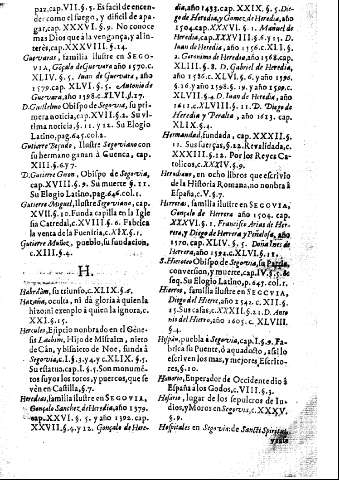 paz.cap.VII.§.5. Es facil de encen-
der como el fuego, y dificil de apa-
gar, cap.XXXVI.§.9. No conoce
mas Dios que à la vengança, y al in-
terès, cap.XXXVIII.§.14.
Guevaras, familia ilustre en SEGO-
VIA, Gõçalo de Guevara año 1570.c.
XLIV.§.5. Iuan de Guevara, año
1579.cap.XLVI.§.5. Antonio de
Guevara, año 1598.c.XLVI.§.27.
D.Guillelmo Obispo de Segovia, su pri-
mera noticia, cap.XVII.§.2. Su vl-
tima noticia, §.11. y 12. Su Elogio
Latino, pag.645.col.
Gutierre Bejude, Ilustre Segoviano con
su hermano ganan à Cuenca, cap.
XVIII.§.6.y 7.
D.Gutierre Giron, Obispo de Segovia,
cap.XVIII.§.9. Su muerte §.11.
Su Elogio Latino, pag.646.col.1.
Gutierre Miguel, Ilustre Segoviano, cap.
XVII.§.10. Funda capilla en la Igle
sia Catredal, c.XVIII.§.6. Fabrica
la venta de la Fuenfria, c.IX.§.1.
Gutierre Muñoz, pueblo, su fundacion,
c.XIII.§.4.
H.
Habidam, su triunfo, c.XLIX.§.
Hazaña, oculta, ni dà gloria à quien la
hizo: ni exemplo à quien la ignora, c.
XXI.§.15.
Hercules, Egipcio nonbrado en el Gene-
sis Laabim, Hijo de Misraim, nieto
de Cán, y bisnieto de Noe, funda à
Segovia, c.I.§.3.y 4.y c.XLIX.§.5.
Su estatua, cap.I.§.5. Son monumen-
tos suyos los toros, y puercos, que se
vèn en Castilla, §.7.
Heredias, familia ilustre en SEGOVIA,
Gonçalo Sanchez de Heredia, año 1379.
cap.XXVI.§.5. y año 1392. cap.
XXVII.§.4.y 12. Gonçalo de Here-
dia, año 1433.cap.XXIX.§.5. Die-
go de Heredia, y Gomez de Heredia, año
1504.cap.XXXVI.§.1. Manuel de
Heredia, cap.XXXVIII.§.6.y 15. D.
Iuan de Heredia, año 1556.c.XLI.§.
2. Geronimo de Heredia, año 1568.cap.
XLIII.§.8. D. Gabriel de Heredia,
año 1586.c.XLVI.§.6.y año 1596.
§.16.y año 1598.§.19.y año 1599.c.
XLVII.§.4. D. Iuan de Heredia, año
1611.c.XLVIII.§.11. D. Diego de
Heredia y Peralta, año 1623. cap.
XLIX.§.4.
Hermandad, fundada, cap. XXXII.§.
11. Sus fuerças, §.12. Revalidada, c.
XXXIII.§.12. Por los Reyes Ca-
tolicos, c.XXXIV.§.9.
Herodiano, en ocho libros que escrivio
de la Historia Romana, no nonbra à
España, c.V.§.7.
Herreras, familia ilustre en SEGOVIA,
Gonçalo de Herrera, año 1504. cap.
XXXVI.§.1. Francisco Arias de Her-
rera, y Diego de Herrera y Peñalosa, año
1570. cap.XLIV.§.5. Doña Ines de
Herrera, año 1592.c.XLVI.§.
S.Hieroteo Obispo de Segovia, su Patria,
conversion, y muerte, cap.IV.§.5.&
seq. Su Elogio Latino, p.647.col.1.
Hierros, familia ilustre en SEGOVIA,
Diego del Hierro, año 1542.c.XII.§.
15. Sus casas, c.XXXII.§.21. D. Anto-
nio del Hierro, año 1605.c.XLVIII.
§.4.
Hispàn, puebla à Segovia, c.I.§.9. Fa-
brica su Puente, ò aquaducto, assi lo
escriven los mas, y mejores, Escrito-
res, §.10.
Honorio, Enperador de Occidente diò à
España à los Godos, c.VIII.§.3.
Hosario, lugar de los sepulcros de Iu-
dios, y Moros en Segovia, c.XXXV.
§.9.
Hospitales en Segovia; de Sancti Spiritus